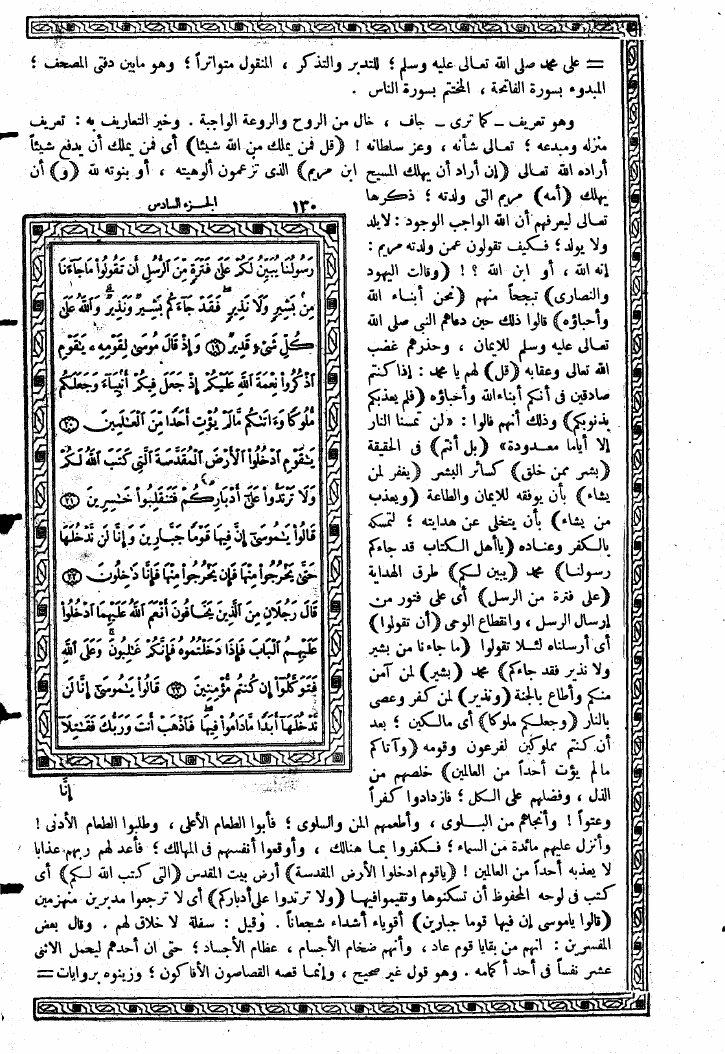 = على محمد صلى الله تعالى عليه وسلم ؛ للتدبر والتذكر ، المنقول متواتراً ؛ وهو مابين دفتى المصحف ؛
المبدوء بسورة الفاتحة ، المختتم بسورة الناس .
وهو تعريف ــ كما ترى ــ جاف ، خال من الروح والروعة الواجبة . وخير التعاريف به : تعريف
منزله ومبدعه ؛ تعالى شأنه ، وعز سلطانه ! (قل فمن يملك من الله شيئا) أى فمن يملك أن يدفع شيئاً
أراده الله تعالى (إن أراد أن يهلك المسيح ابن مريم) الذى تزعمون ألوهيته ، أو بنوته لله (و) أن
يهلك (أمه) مريم التى ولدته ؛ ذكرها
تعالى ليعرفهم أن الله الواجب الوجود : لايلد
ولا يولد؛ فكيف تقولون عمن ولدته مريم :
إنه الله ، أو ابن الله ؟! (وقالت اليهود
والنصارى) تبجحاً منهم (نحن أبناء الله
وأحباؤه) قالوا ذلك حين دعاهم النبى صلى الله
تعالى عليه وسلم للايمان ، وحذرهم غضب
الله تعالى وعقابه (قل) لهم يا محمد : إذا كنتم
صادقين فى أنكم أبناءالله وأحباؤه (فلم يعذبكم
بذنوبكم) وذلك أنهم قالوا : «لن تمسنا النار
إلا أياما معدودة» (بل أنتم) فى الحقيقة
(بشر ممن خلق) كسائر البشر (يغفر لمن
يشاء) بأن يوفقه للايمان والطاعة (ويعذب
من يشاء) بأن يتخلى عن هدايته ؛ لتمسكه
بالكفر وعناده (ياأهل الكتاب قد جاءكم
رسولنا) محمد (يبين لكم) طرق الهداية
(على فترة من الرسل) أى على فتور من
إرسال الرسل ، وانقطاع الوحى (أن تقولوا)
أى أرسلناه لئلا تقولوا (ما جاءنا من بشير
ولا نذير فقد جاءكم) محمد (بشير) لمن آمن
منكم وأطاع بالجنة (ونذير) لمن كفر وعصى
بالنار (وجعلكم ملوكا) أى مالكين ؛ بعد
أن كنتم مملوكين لفرعون وقومه (وآتاكم
مالم يؤت أحداً من العالمين) خلصهم من
الذل ، وفضلهم على الكل ؛ فازدادوا كفراً
الجزء السادس ١٣٠
رَسُولُنَا يُبَيِّنُ لَكُمْ عَلَىٰ فَتْرَةٍ مِّنَ ٱلرُّسُلِ أَن تَقُولُوا۟ مَا جَآءَنَا
مِنۢ بَشِيرٍ وَلَا نَذِيرٍ فَقَدْ جَآءَكُم بَشِيرٌ وَنَذِيرٌ وَٱللَّهُ عَلَىٰ
كُلِّ شَىْءٍ قَدِيرٌ ١٩ وَإِذْ قَالَ مُوسَىٰ لِقَوْمِهِۦ يَـٰقَوْمِ
ٱذْكُرُوا۟ نِعْمَةَ ٱللَّهِ عَلَيْكُمْ إِذْ جَعَلَ فِيكُمْ أَنۢبِيَآءَ وَجَعَلَكُم
مُّلُوكًا وَءَاتَىٰكُم مَّا لَمْ يُؤْتِ أَحَدًا مِّنَ ٱلْعَـٰلَمِينَ ٢٠
يَـٰقَوْمِ ٱدْخُلُوا۟ ٱلْأَرْضَ ٱلْمُقَدَّسَةَ ٱلَّتِى كَتَبَ ٱللَّهُ لَكُمْ
وَلَا تَرْتَدُّوا۟ عَلَىٰٓ أَدْبَارِكُمْ فَتَنقَلِبُوا۟ خَـٰسِرِينَ ٢١
قَالُوا۟ يَـٰمُوسَىٰٓ إِنَّ فِيهَا قَوْمًا جَبَّارِينَ وَإِنَّا لَن نَّدْخُلَهَا
حَتَّىٰ يَخْرُجُوا۟ مِنْهَا فَإِن يَخْرُجُوا۟ مِنْهَا فَإِنَّا دَٰخِلُونَ ٢٢
قَالَ رَجُلَانِ مِنَ ٱلَّذِينَ يَخَافُونَ أَنْعَمَ ٱللَّهُ عَلَيْهِمَا ٱدْخُلُوا۟
عَلَيْهِمُ ٱلْبَابَ فَإِذَا دَخَلْتُمُوهُ فَإِنَّكُمْ غَـٰلِبُونَ وَعَلَى ٱللَّهِ
فَتَوَكَّلُوٓا۟ إِن كُنتُم مُّؤْمِنِينَ ٢٣ قَالُوا۟ يَـٰمُوسَىٰٓ إِنَّا لَن
نَّدْخُلَهَآ أَبَدًا مَّا دَامُوا۟ فِيهَا فَٱذْهَبْ أَنتَ وَرَبُّكَ فَقَـٰتِلَآ
إِنَّا
وعتواً ! وأنجاهم من البلوى ، وأطعمهم المن والسلوى ؛ فأبوا الطعام الأعلى ، وطلبوا الطعام الأدنى !
وأنزل عليهم مائدة من السماء ؛ فكفروا بما هنالك ، وأوقعوا أنفسهم فى المهالك ؛ فأعد لهم ربهم عذابا
لا يعذبه أحداً من العالمين ! (ياقوم ادخلوا الأرض المقدسة) أرض بيت المقدس (التى كتب الله لكم) أى
كتب فى لوحه المحفوظ أن تسكنوها وتقيموافيها (ولا ترتدوا على أدباركم) أى لا ترجعوا مدبرين منهزمين
(قالوا ياموسى إن فيها قوما جبارين) أقوياء أشداء شجعاناً . وقيل : سفلة لا خلاق لهم . وقال بعض
المفسرين : انهم من بقايا قوم عاد ، وأنهم ضخام الأجسام ، عظام الأجساد ؛ حتى ان أحدهم ليحمل الاثنى
عشر نفساً فى أحد أكمامه . وهو قول غير صحيح ، وإنما قصه القصاصون الأفاكون ؛ وزينوه بروايات =